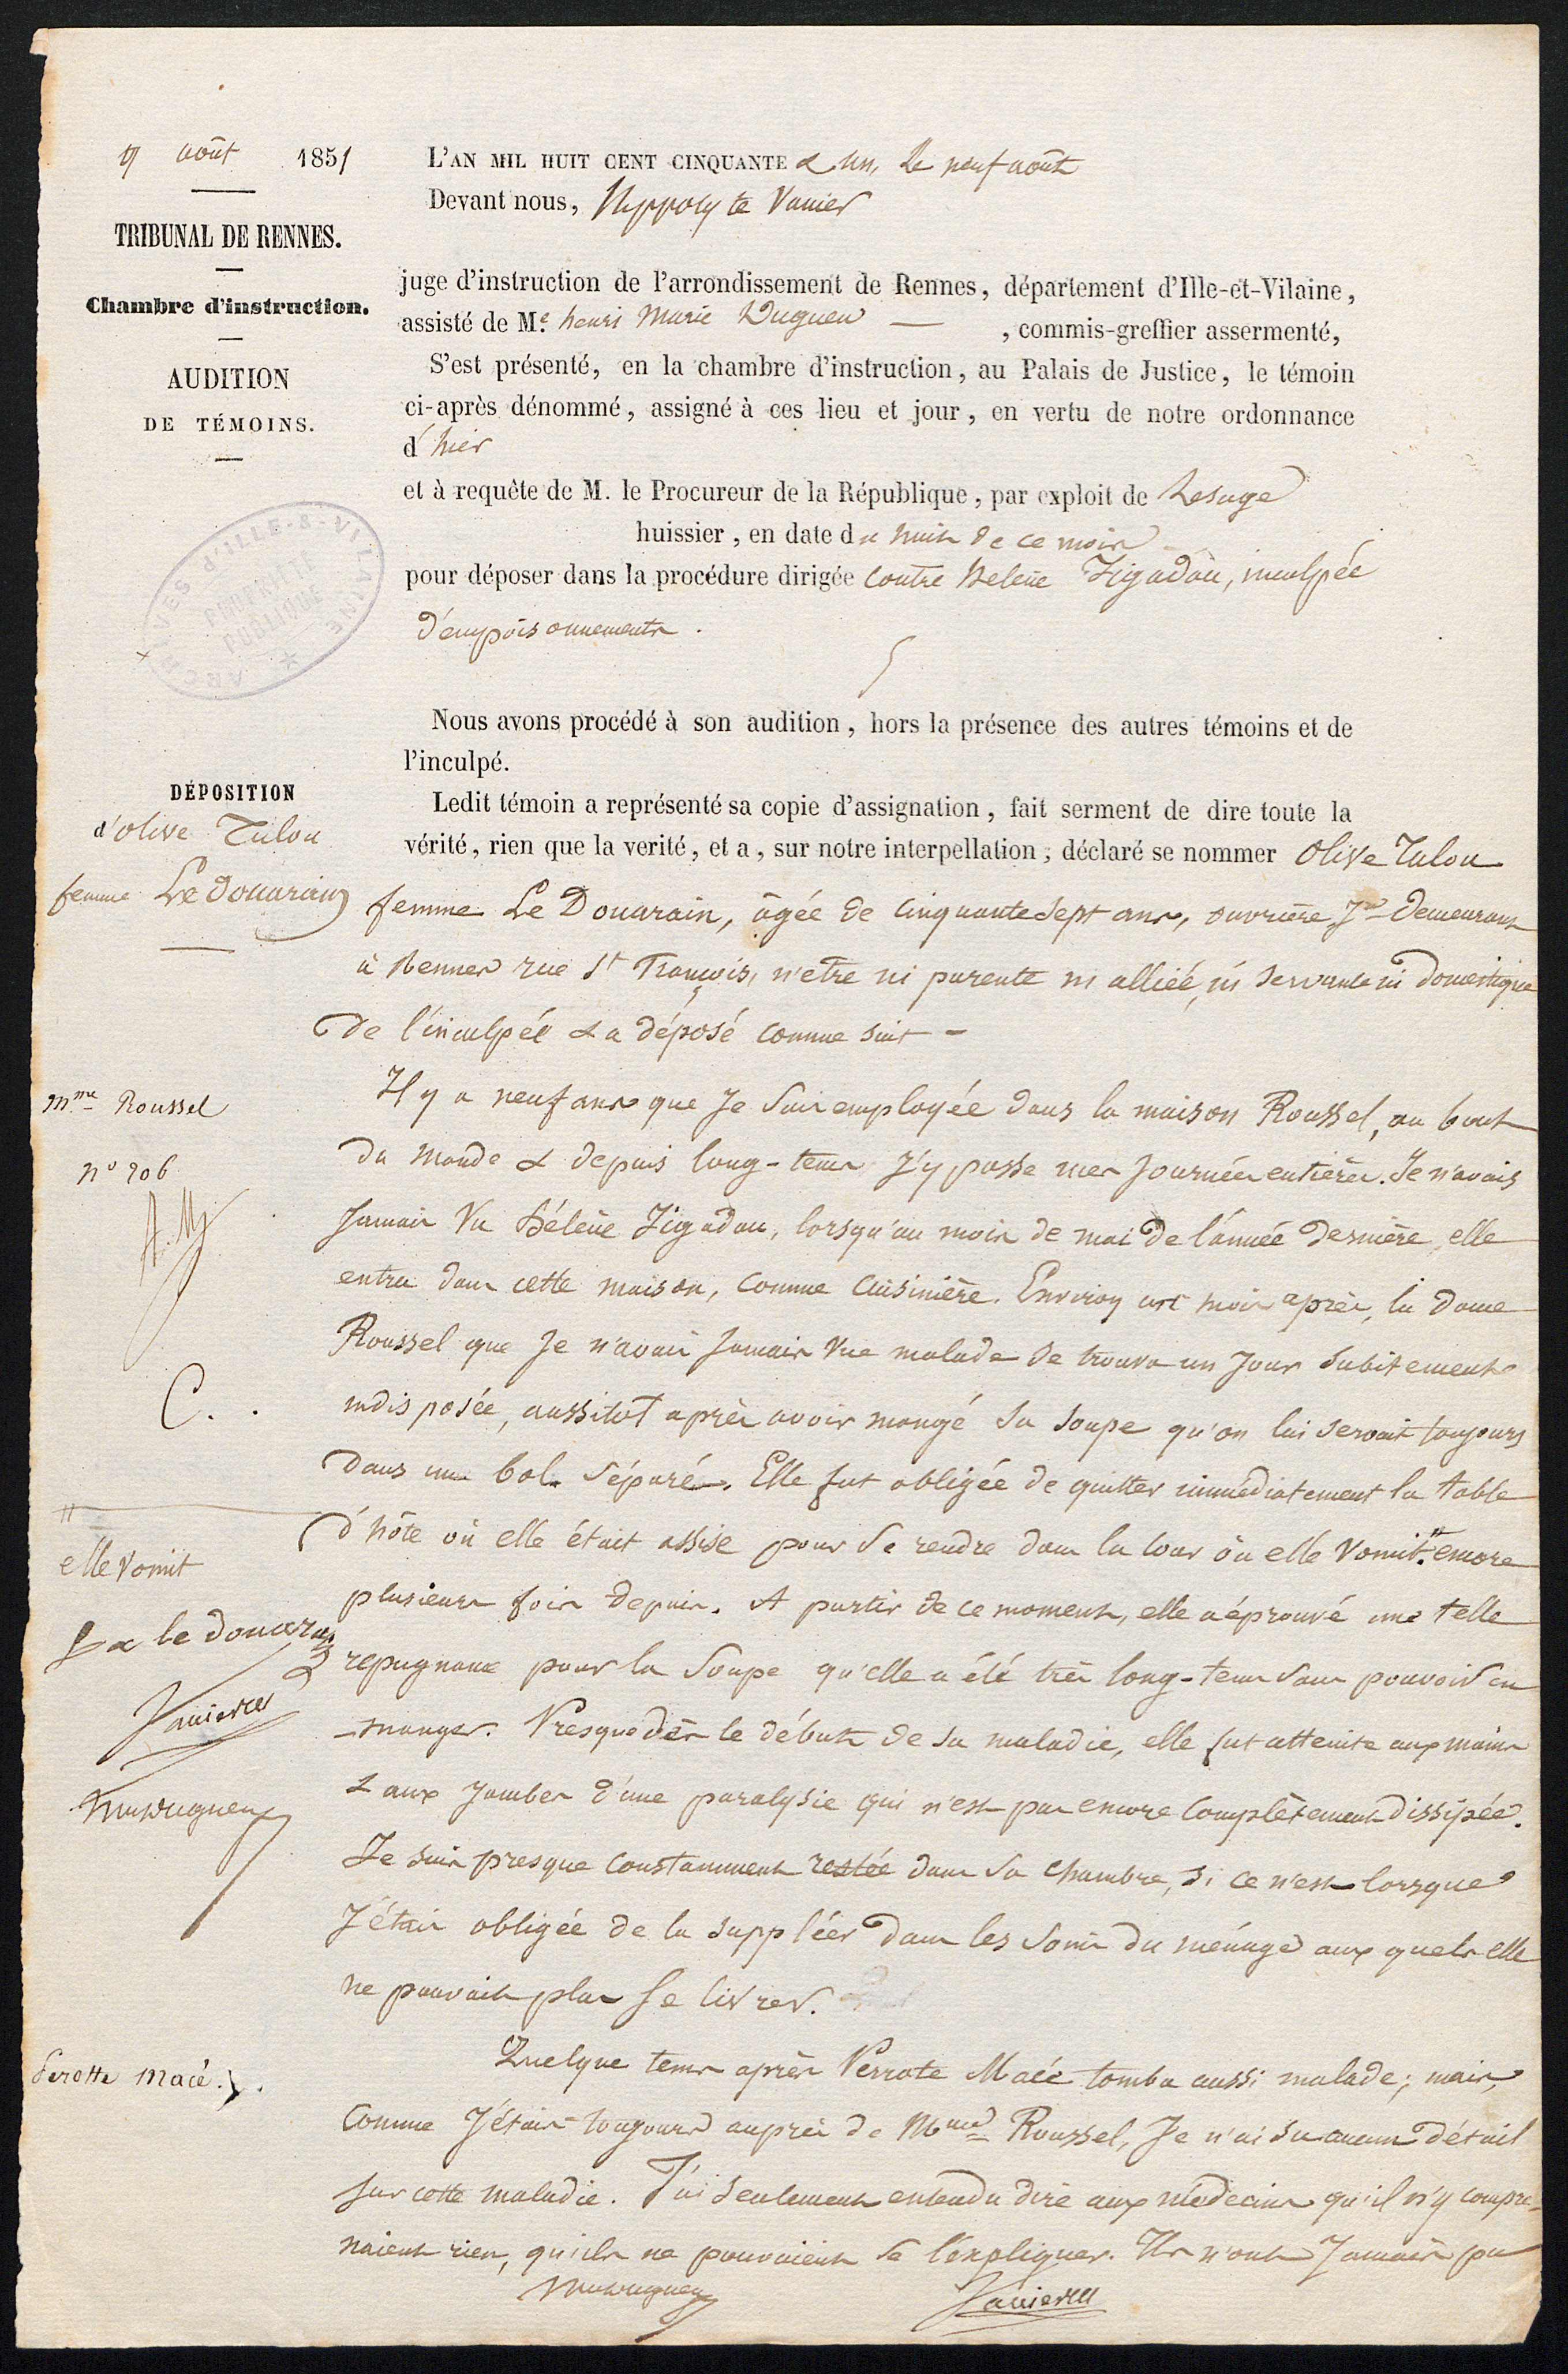 9 août 1851
TRIBUNAL DE RENNES.
Chambre d'instruction.
AUDITION
DE TÉMOINS.
ARCHIVES D'ILLE-&-VILAINE
PROPRIÉTÉ
PUBLIQUE
L'AN MIL HUIT CENT CINQUANTE & un, le neuf août
Devant nous, hyppolyte Vanier
juge d'instruction de l'arrondissement de Rennes, département d'Ille-et-Vilaine,
assisté de M.e henri Marie Duguen — , commis-greffier assermenté,
S'est présenté, en la chambre d'instruction, au Palais de Justice, le témoin
ci-après dénommé, assigné à ces lieu et jour, en vertu de notre ordonnance
d'hier
et à requête de M. le Procureur de la République, par exploit de Lesage
huissier, en date du huit de ce mois
pour déposer dans la procédure dirigée contre helène Jégadau, inculpée
d'empoisonnements.
Nous avons procédé à son audition, hors la présence des autres témoins et de
l'inculpé.
Ledit témoin a représenté sa copie d'assignation, fait serment de dire toute la
vérité, rien que la verité, et a, sur notre interpellation, déclaré se nommer Olive Tulou
DÉPOSITION
d'olive Tulou
femme Le Douarain
femme Le Douarain, âgée de cinquante sept ans, ouvrière, demeurant
à Rennes rue St François, n'etre ni parente ni alliée, ni servante ni domestique
de l'inculpée & a déposé comme suit -
Mme Roussel
n° 206
C.
Il y a neuf ans que Je suis employée dans la maison Roussel, au bout
du monde & depuis long-tems J'y passe mes Journées entières. Je n'avais
Jamais vu hélène Jégadau, lorsqu'au mois de mai de l'année dernière, elle
entra dans cette maison, comme cuisinière. Environ un mois après, la dame
Roussel que Je n'avais Jamais vue malade se trouva un Jour subitement
indisposée, aussitot après avoir mangé sa soupe qu'on lui servait toujours
dans un bol séparé. Elle fut obligée de quitter immédiatement la table
d'hôte où elle était assise pour se rendre dans la cour où elle vomit. # encore
plusieurs fois depuis. A partir de ce moment, elle a éprouvé une telle
repugnance pour la soupe qu'elle a été très long-tems sans pouvoir en
manger. Presque dès le début de sa maladie, elle fut atteinte aux mains
& aux Jambes d'une paralysie qui n'est pas encore complètement dissipée.
Je suis presque constamment restée dans sa chambre, si ce n'est lorsque
J'étais obligée de la suppléer dans les soins du ménage aux quels elle
ne pouvait plus se livrer.
#
elle vomit
le douarain
Vanier
Duguen
Perotte Macé.
Quelque tems après Perrote Macé tomba aussi malade; mais,
comme J'étais toujours auprès de Mme Roussel, Je n'ai su aucun détail
sur cette maladie. J'ai seulement entendu dire aux médecins qu'il n'y compre-
naient rien, qu'ils ne pouvaient se l'expliquer. Ils n'ont Jamais pu
Duguen
Vanier